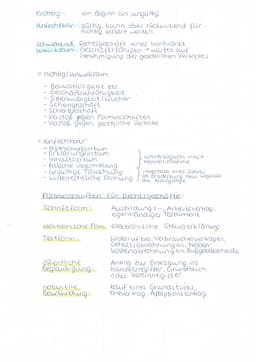 nichtig: von Beginn an ungültig
anfechtbar: gültig, kann aber rückwirkend für
nichtig erklärt werden
schwebend Rechtsgeschäft eines beschränkt
unwirksam: Geschäftsfähigen → wartet auf
Genehmigung des gesetzlichen Vertreters
nichtig/unwirksam
- Böswilligkeit etc
- Geschäftsunfähigkeit
- Sittenwidrigkeit/Wucher
- Scheingeschäft
- Scherzgeschäft
- Verstoß gegen Formvorschriften
- Verstoß gegen gesetzliche Verbote
anfechtbar
- Erklärungsirrtum
- Inhaltsirrtum unverzüglich nach
- falsche Übermittlung Kenntnisnahme
- arglistige Täuschung innerhalb eines Jahres
- widerrechtliche Drohung ab Entdeckung bzw. Wegfall
der Zwangslage
Formvorschriften für Rechtsgeschäfte:
Schriftform: Ausbildungs-, Arbeitsvertrag,
eigenhändiges Testament
elektronische Form elektronische Steuererklärung
Textform: Widerruf bei Verbraucherverträgen,
Gehaltsabrechnungen, Neben-
kostenabrechnung
öffentliche Antrag zur Eintragung in
Beglaubigung: Handelsregister, Grundbuch
oder Vereinsregister
notarielle Kauf eines Grundstücks,
Beurkundung: Ehevertrag, Adoptionsantrag